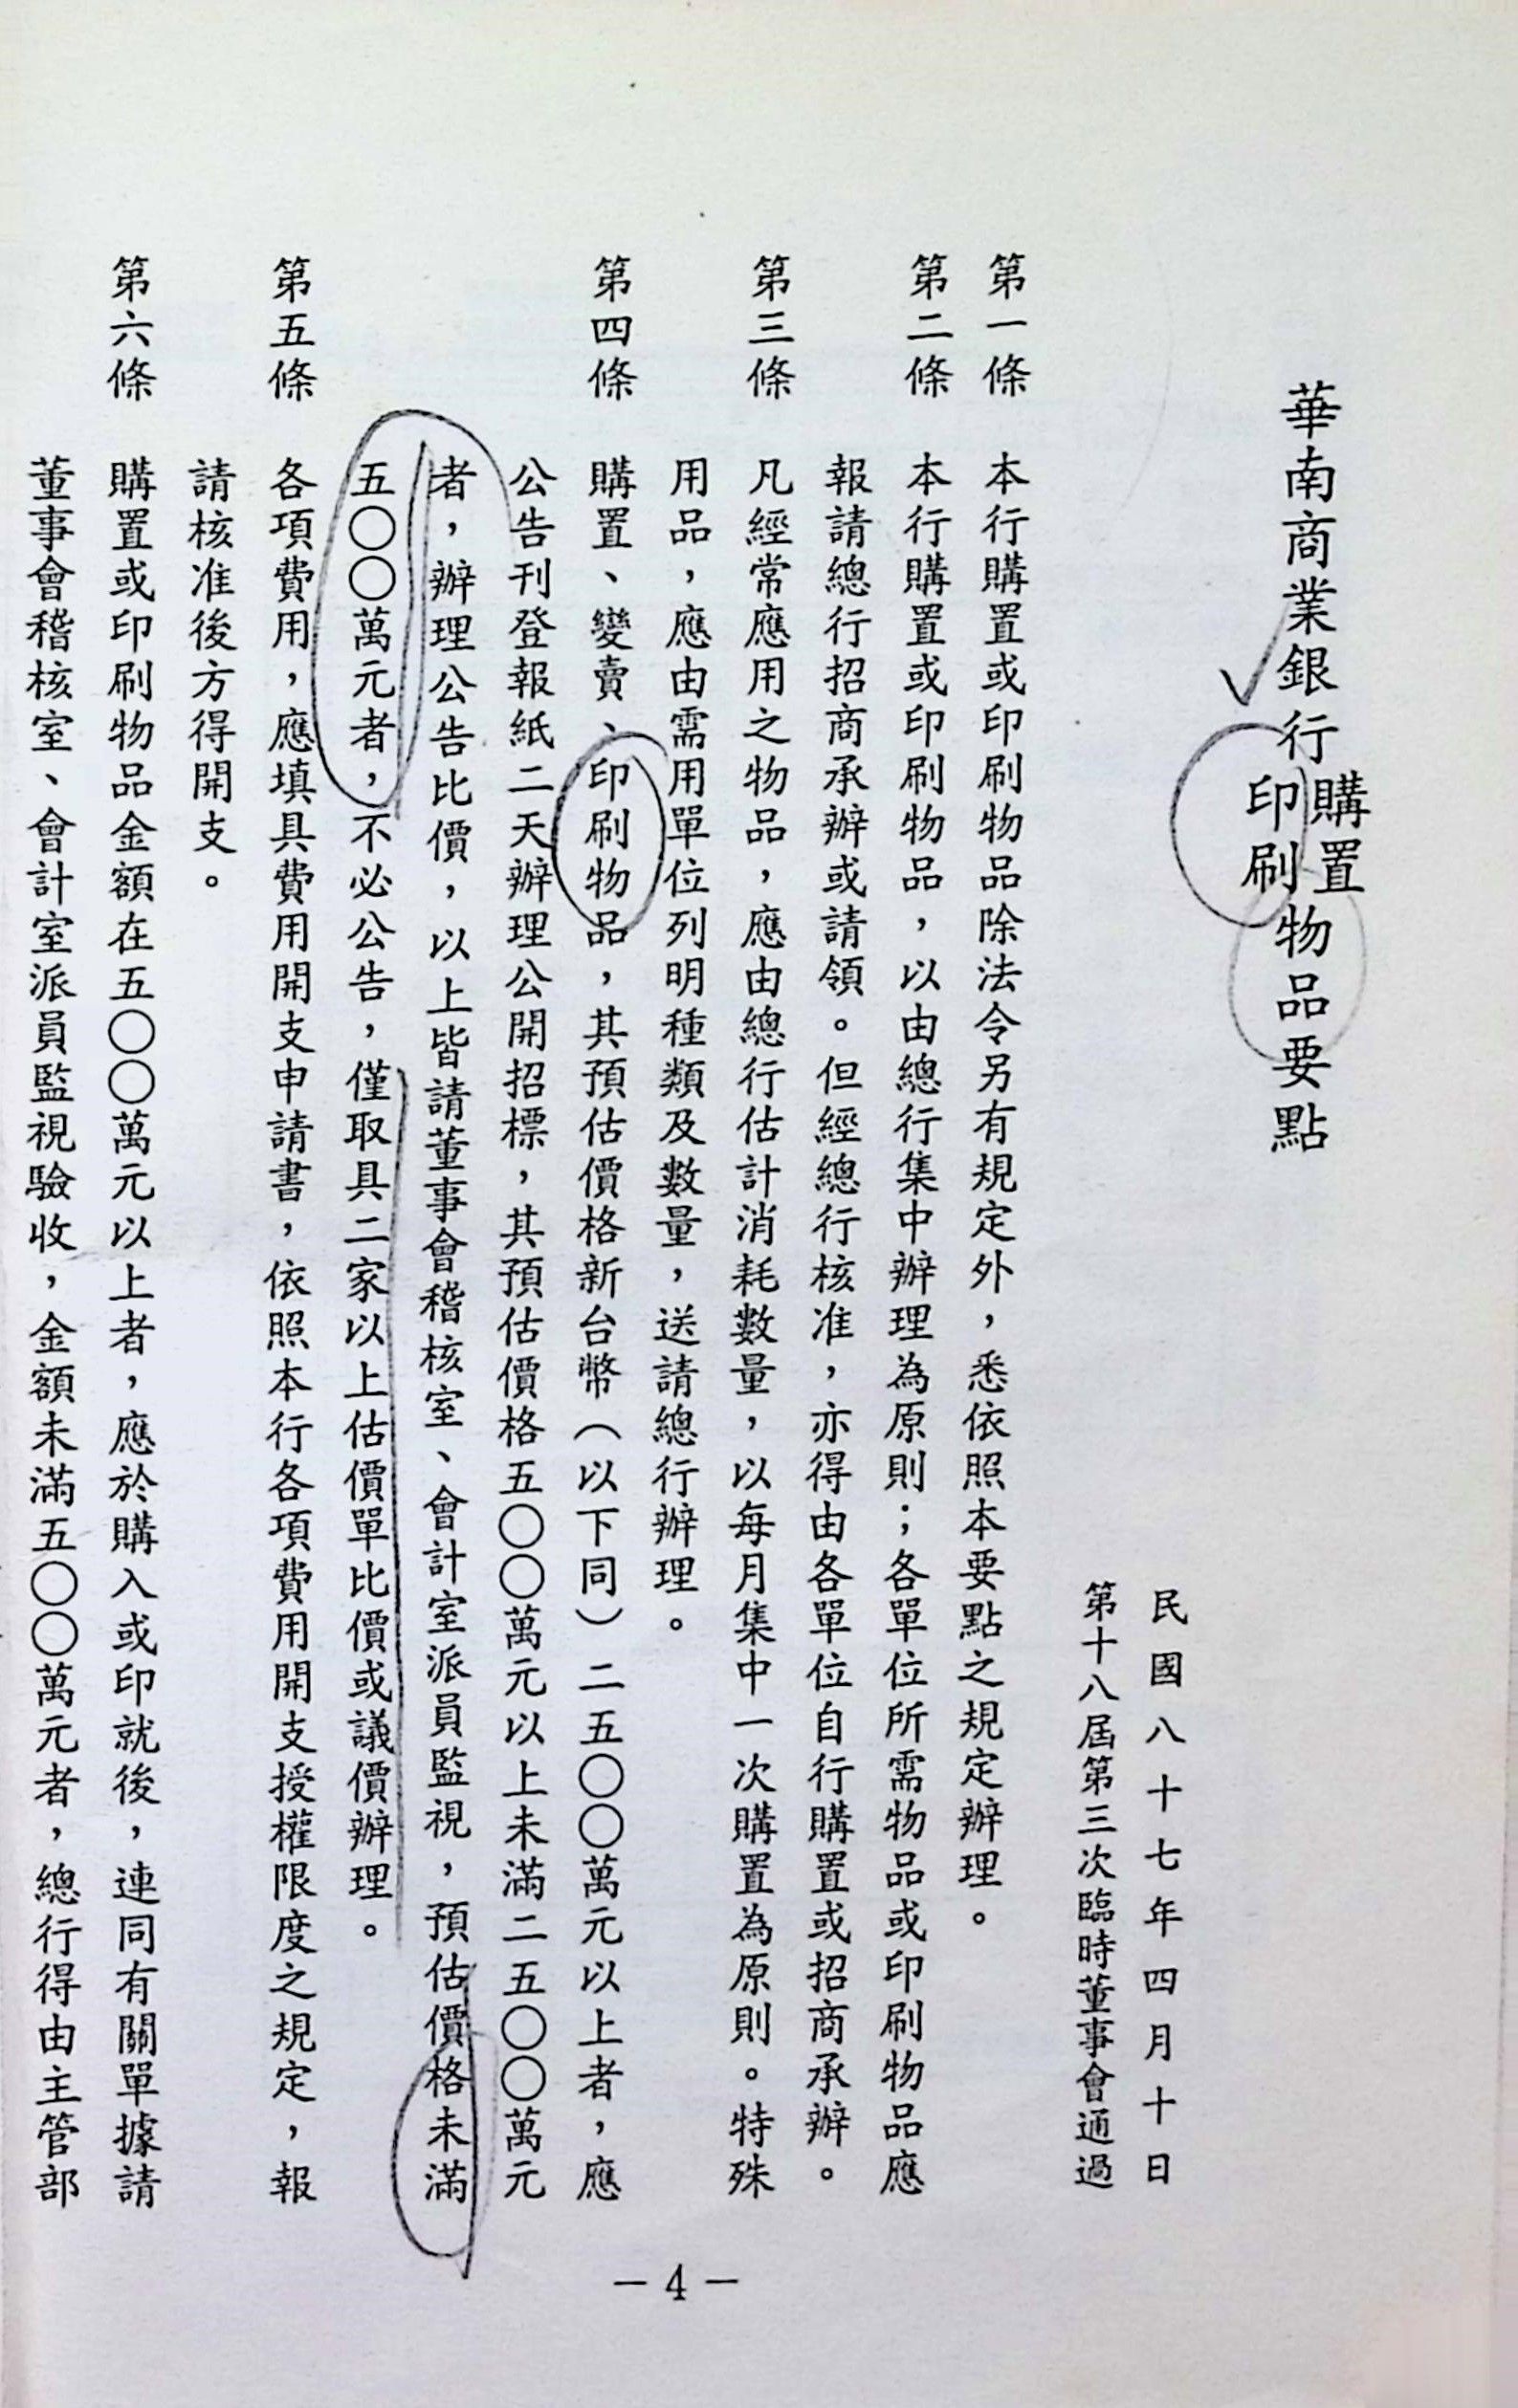 華南商業銀行購置印刷物品要點
民國八十七年四月十日
第十八屆第三次臨時董事會通過
第一條　本行購置或印刷物品除法令另有規定外，悉依照本要點之規定辦理。
第二條　本行購置或印刷物品，以由總行集中辦理為原則；各單位所需物品或印刷物品應
報請總行招商承辦或請領。但經總行核准，亦得由各單位自行購置或招商承辦。
第三條　凡經常應用之物品，應由總行估計消耗數量，以每月集中一次購置為原則。特殊
用品，應由需用單位列明種類及數量，送請總行辦理。
第四條　購置、變賣、印刷物品，其預估價格新台幣（以下同）二五〇〇萬元以上者，應
公告刊登報紙二天辦理公開招標，其預估價格五〇〇萬元以上未滿二五〇〇萬元
者，辦理公告比價，以上皆請董事會稽核室、會計室派員監視，預估價格未滿
五〇〇萬元者，不必公告，僅取具二家以上估價單比價或議價辦理。
第五條　各項費用，應填具費用開支申請書，依照本行各項費用開支授權限度之規定，報
請核准後方得開支。
第六條　購置或印刷物品金額在五〇〇萬元以上者，應於購入或印就後，連同有關單據請
董事會稽核室、會計室派員監視驗收，金額未滿五〇〇萬元者，總行得由主管部
－4－